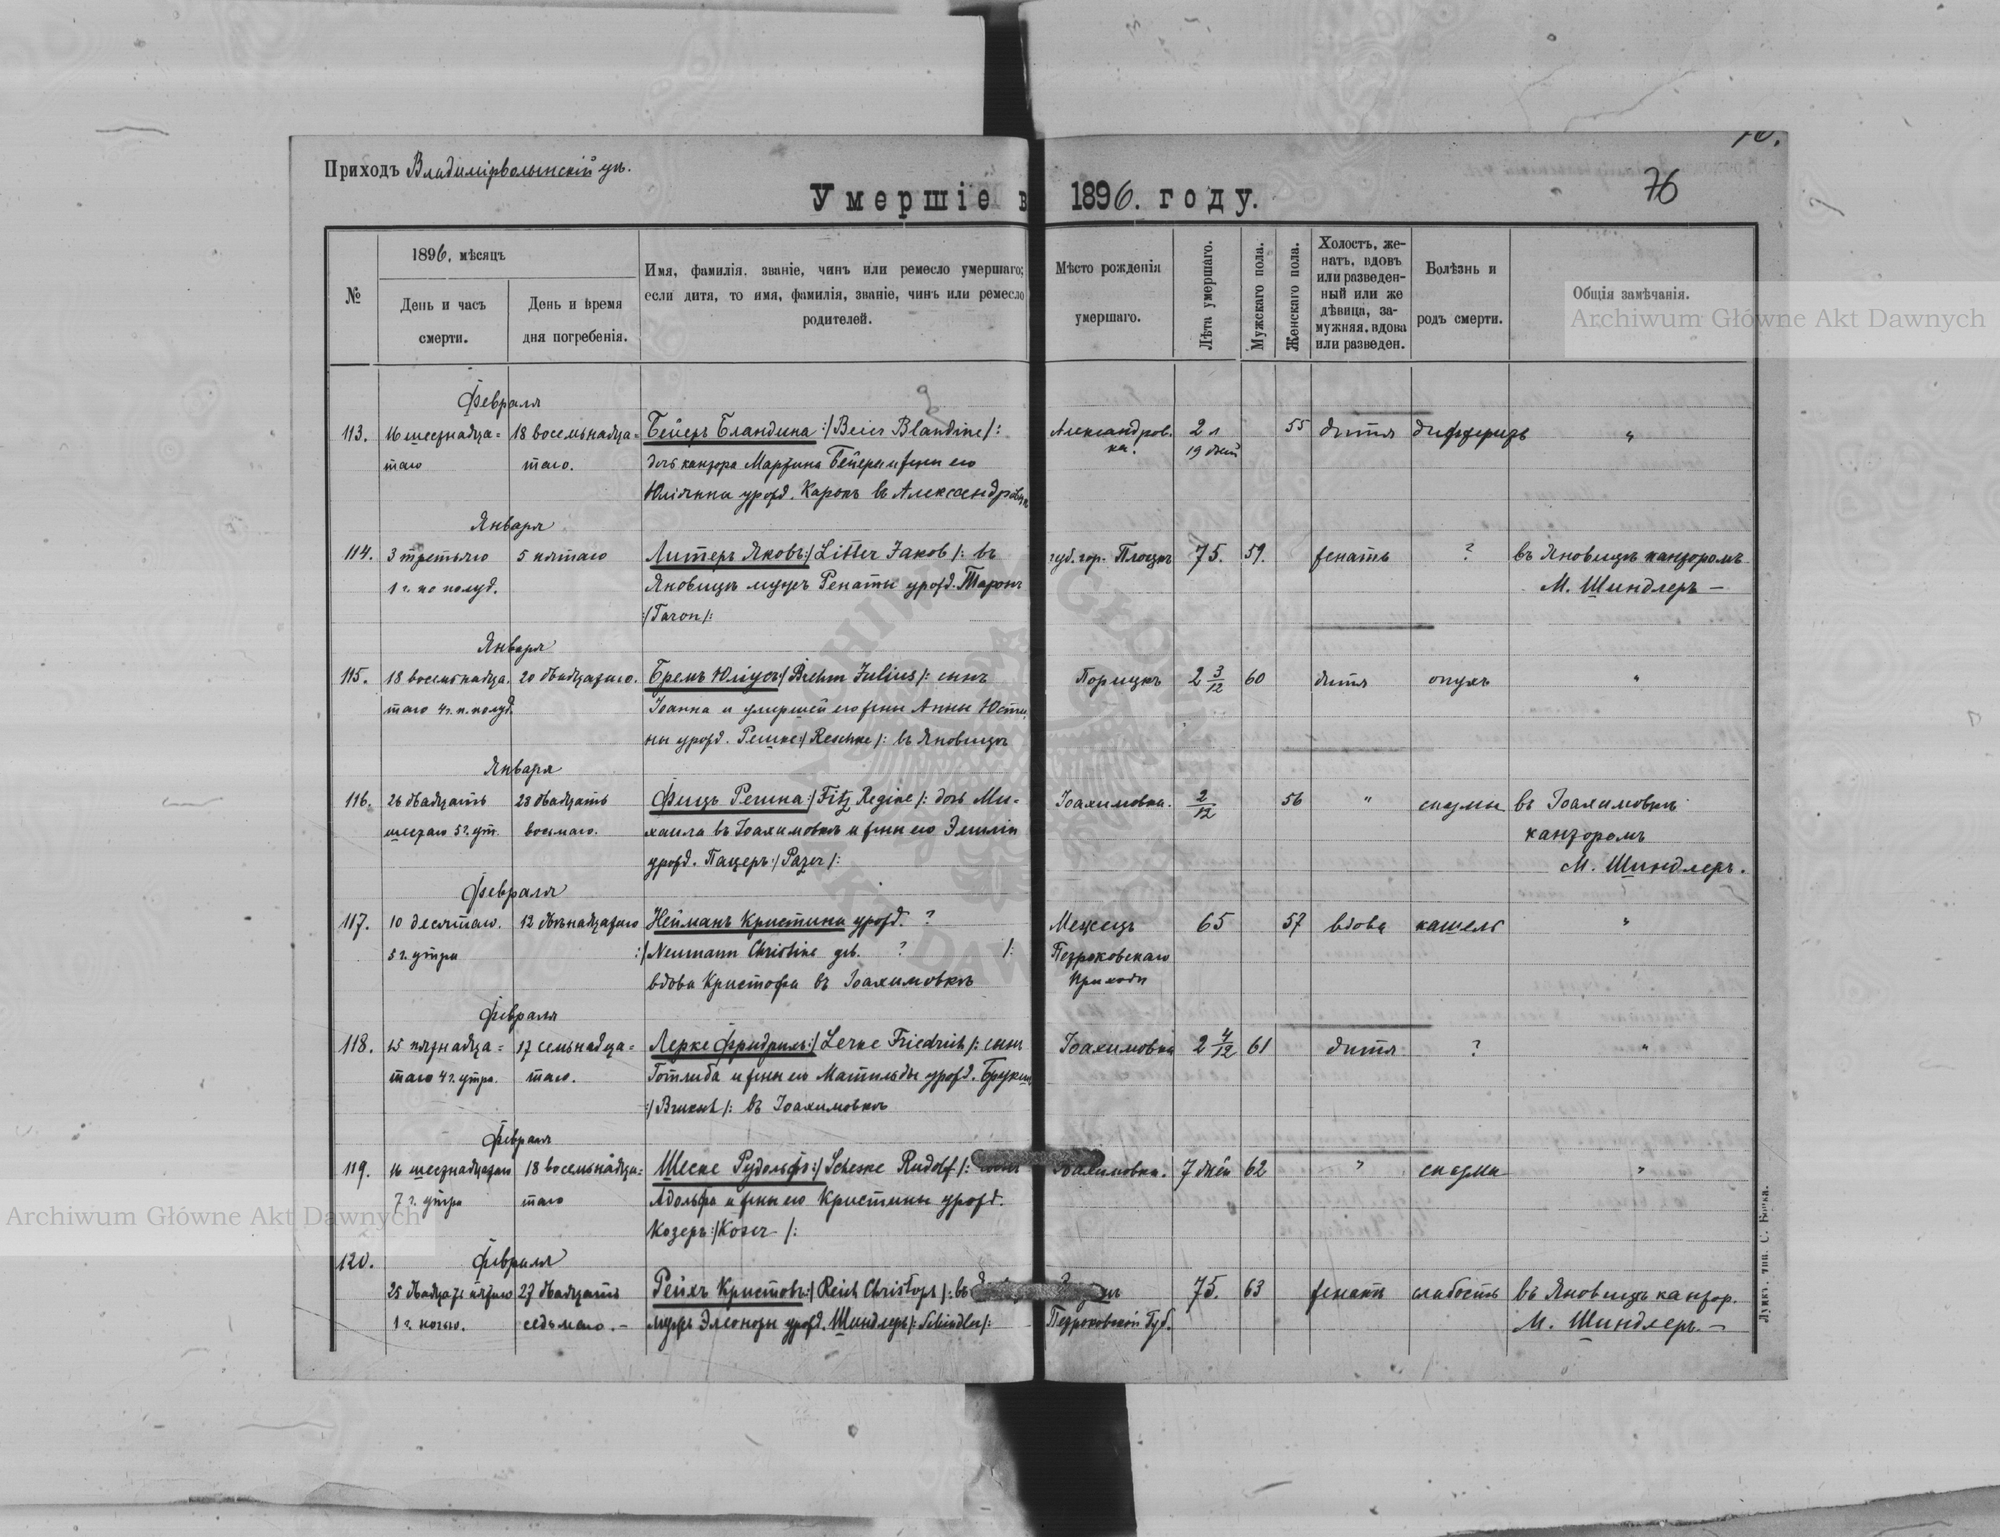 Приходъ Владимірволынскій ув.
76
Умершіе в 1896. году.
№
1896. мѣсяцъ
День и часъ смерти.
День и время дня погребенія.
Имя, фамилія, званіе, чинъ или ремесло умершаго;
если дитя, то имя, фамилія, званіе, чинъ или ремесло
родителей.
Мѣсто рожденія
умершаго.
Лѣта умершаго.
Мужскаго пола.
Женскаго пола.
Холостъ, же-
натъ, вдовъ
или разведен-
ный или же
дѣвица, за-
мужняя, вдова
или разведен.
Болѣзнь и
родъ смерти.
Общія замѣчанія.
Archiwum Główne Akt Dawnych
Февраля
113. 16 шестнадца= 18 восемьнадца= Бейеръ Бландина :/Beier Blandine/: Александров. 2 л 55 дитя дифферитъ "
таго таго. дочь кантора Мартина Бейера и жены его ка. 19 дней
Юліянны урожд. Каронъ въ Александровкѣ
Января
114. 3 третьяго 5 пятаго Литеръ Яковъ:/Litter Jakob/: въ губ. гор. Плоцкъ 75. 59. женатъ ? въ Яновицѣ канторомъ
1 ч. по полуд. Яновицѣ мужъ Ренаты урожд. Таронъ М. Шиндлеръ —
:/Taron/:
Января
115. 18 восемьнадца. 20 двадцатаго. Бремъ Юліусъ:/Brehm Julius/: сынъ Порицкъ 2 3/12 60 дитя опухъ "
таго 4 ч. п. полуд. Іоанна и умершей его жены Анны Юсти.
ны урожд. Решке:/Reschke/: въ Яновицѣ
Января
116. 26 двадцать 28 двадцать Фицъ Регина:/Fitz Regine/: дочь Ми= Іоахимовка. 2/12 56 " спазмы въ Іоахимовкѣ
шестаго 5 ч. ут. восьмаго. хаила въ Іоахимовкѣ и жены его Эмиліи канторомъ
урожд. Пацеръ:/Pazer/: М. Шиндлеръ.
Февраля
117. 10 десятаго. 12 двѣнадцатаго Нейманъ Кристина урожд. ? Межецъ 65 57 вдова кашель "
5 ч. утра :/Neumann Christine geb. ? /: Петроковскаго
вдова Кристофа въ Іоахимовкѣ Прихода
Февраля
118. 15 пятнадца= 17 семьнадца= Лерке Фридрихъ:/Lerke Friedrich/: сынъ Іоахимовка 2 4/12 61 дитя ? "
таго 4 ч. утра. таго. Готлиба и жены его Матильды урожд. Брукшъ
въ Іоахимовкѣ
Февраля
119. 16 шестнадцатаго 18 восемьнадца= Шеске Рудольфъ:/Scheske Rudolf/: сынъ Іоахимовка. 7 дней 62 " спазмы "
7 ч. утра таго Адольфа и жены его Кристины урожд.
Козеръ:/Koser/:
Archiwum Główne Akt Dawnych
120. Февраля
25 двадцать пятаго 27 двадцать Рейхъ Кристовъ:/Reich Christoph/: въ 75. 63 женатъ слабость въ Яновицѣ кантор.
1 ч. ночью. седьмаго. — мужъ Элеоноры урожд. Шиндлеръ/:Schindler/: Петроковской Губ. М. Шиндлеръ. —
Луцкъ, тип. С. Бонка.